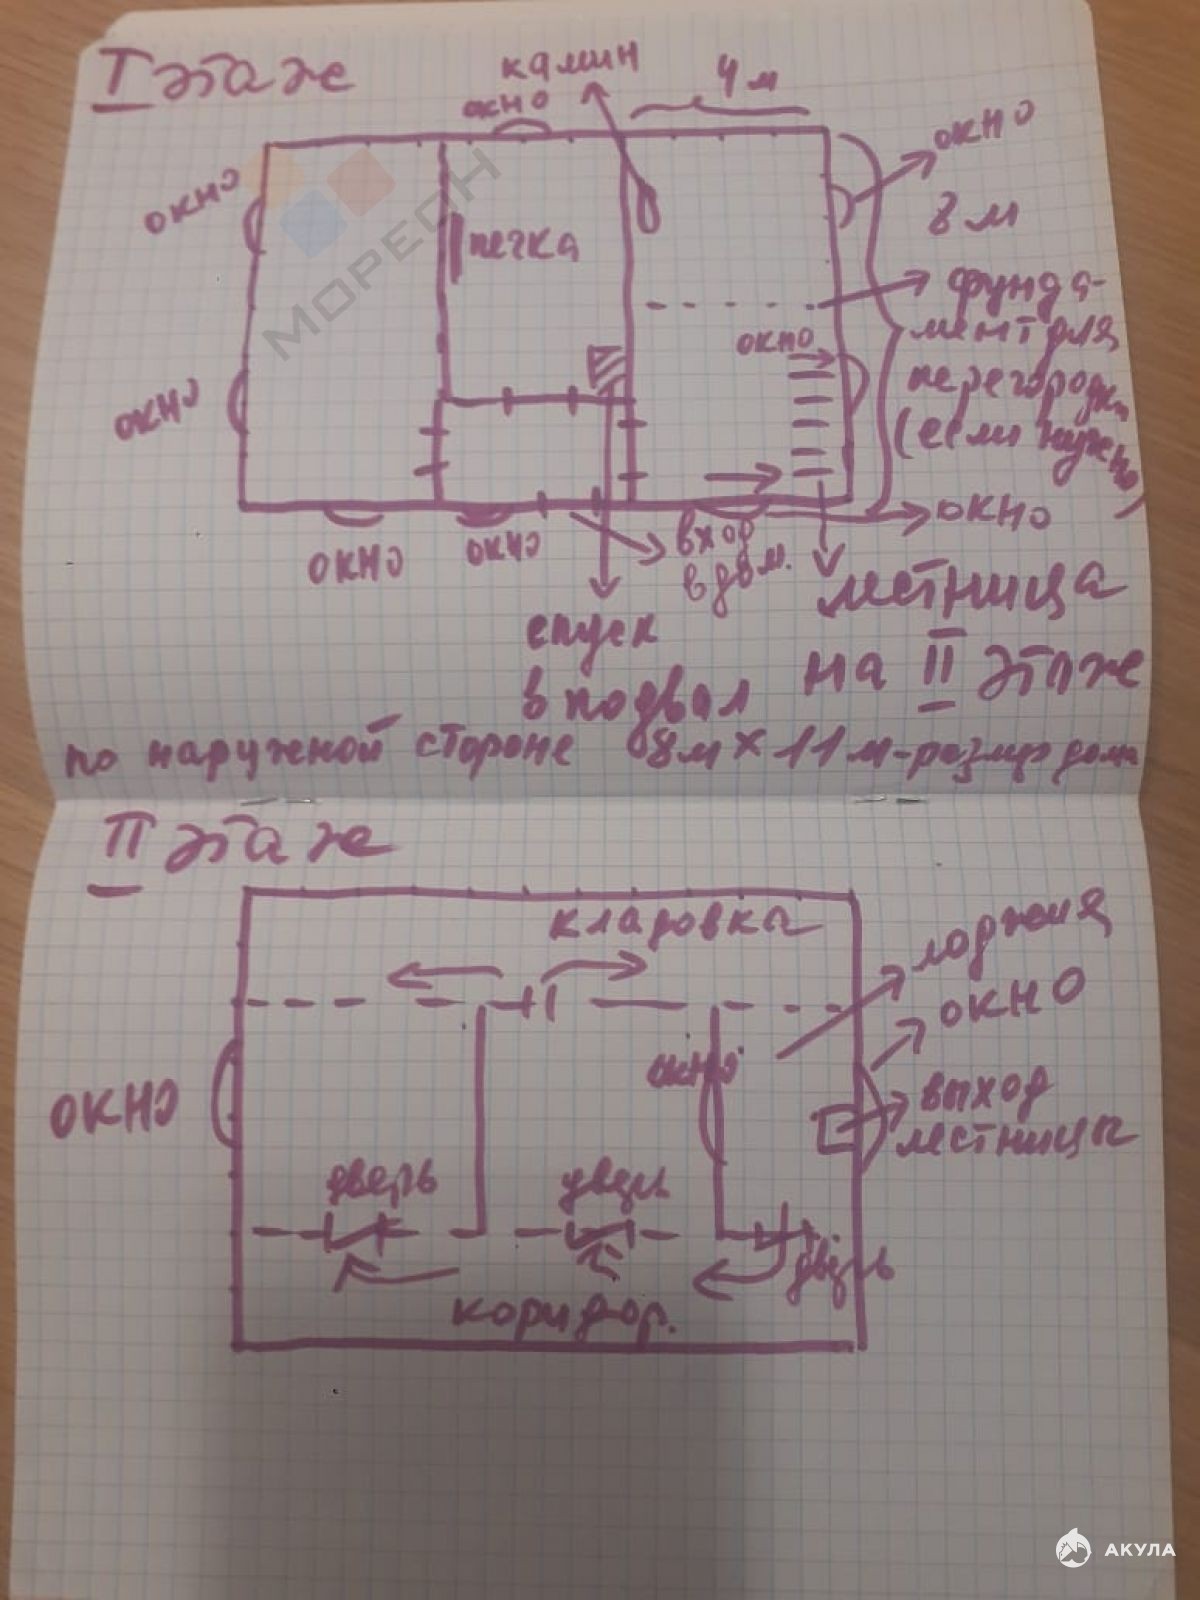 I этаж
камин
окно
4 м
окно
окно
8 м
печка
фунда-
мент для
перегородки
(если нужно)
окно
окно
окно
окно
окно
вход
в дом.
лестница
на II этаж
спуск
в подвал
по наружной стороне 8м x 11м-размер дома
II этаж
кладовки
лоджия
окно
окно
окно
выход
лестницы
дверь
дверь
дверь
коридор.
МОРЕОН
АКУЛА